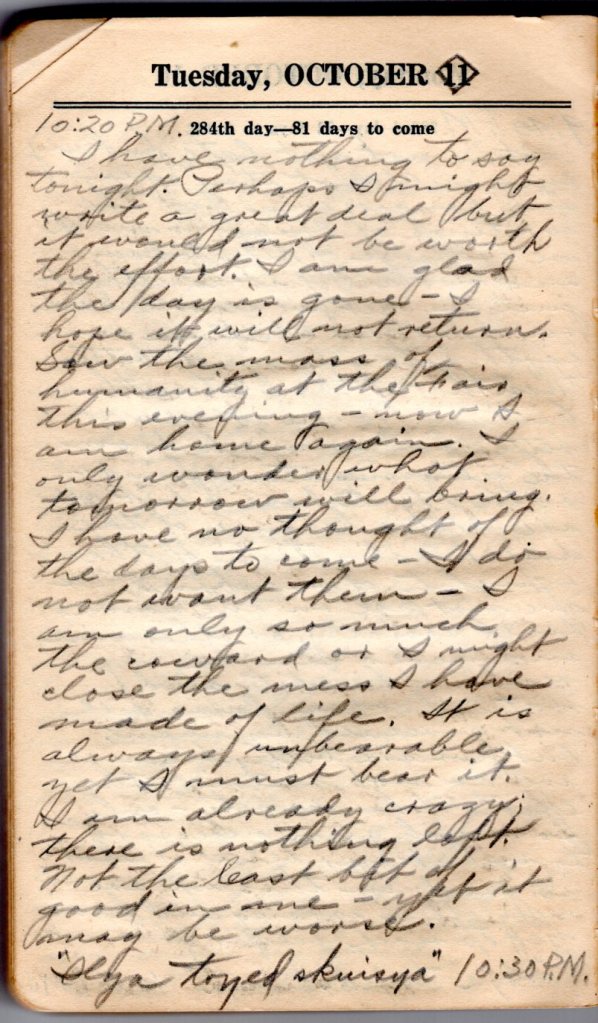 Tuesday, OCTOBER 11
10:20 P.M. 284th day—81 days to come
I have nothing to say
tonight. Perhaps I might
write a great deal but
it would not be worth
the effort. I am glad
the day is gone – I
hope it will not return.
Saw the mass of
humanity at the Fair
this evening – now I
am home again. I
only wonder what
tomorrow will bring.
I have no thought of
the days to come – I do
not want them – I
am only so much
the coward or I might
close the mess I have
made of life. It is
always unbearable
yet I must bear it.
I am already crazy;
there is nothing left.
Not the least bit of
good in me – yet it
may be worse.
10:30 P.M.